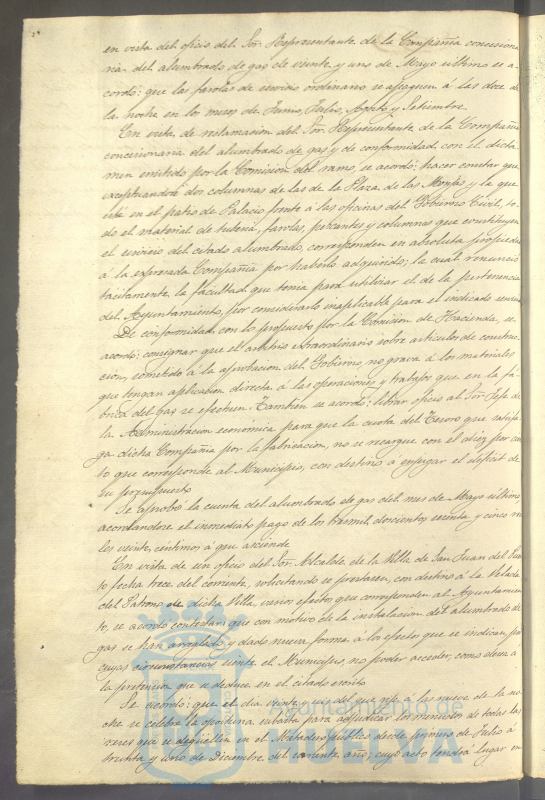 en vista del oficio del Sor. Representante de la Compañia concesiona
ria del alumbrado de gas de veinte y uno de Mayo ultimo se a
cordó: que las farolas de servicio ordinario se apaguen á las doce de
la noche en los meses de Junio, Julio, Agosto y Setiembre.
En vista de reclamacion del Sor. Representante de la Compañia
concesionaria del alumbrado de gas y de conformidad con el dicta
men emitido por la Comision del ramo, se acordó: hacer constar que
esceptuandose dos columnas de las de la Plaza de las Monjas y la que
este en el patio de Palacio frente á las oficinas del Gobierno Civil, to
do el material de tuberia, farolas, pescantes y columnas que constituyen
el servicio del citado alumbrado, corresponden en absoluta propiedad
á la espresada Compañia por haberlo adquirido; la cual renunció
tacitamente, la facultad que tenia para utilizar el de la pertenencia
del Ayuntamiento, por considerarlo inaplicable para el indicado servicio
De conformidad con lo propuesto por la Comision de Hacienda, se
acordó: consignar que el arbitrio extraordinario sobre articulos de construc
cion, sometido á la aprobacion del Gobierno, no grava á los materiales
que tengan aplicacion directa á las operaciones y trabajos que en la fá
brica del gas se efectuen. Tambien se acordó: librar oficio al Sor. Jefe de
la Administracion economica para que la cuota del Tesoro que satisfa
ga dicha Compañia por la fabricacion, no se recargue con el diez por cien
to que corresponde al Municipio, con destino á enjugar el deficit de
su presupuesto
Se aprobó la cuenta del alumbrado de gas del mes de Mayo último
acordandose el inmediato pago de los tresmil doscientos sesenta y cinco rea
les veinte céntimos á que asciende
En vista de un oficio del Sor. Alcalde de la Villa de San Juan del Puer
to fecha trece del corriente, solicitando se prestasen, con destino á la Velada
del Patrono de dicha Villa, varios efectos que corresponden al Ayuntamien
to, se acordó contestar: que con motivo de la instalacion del alumbrado de
gas se han arreglado y dado nueva forma á los efectos que se indican, por
cuyas circunstancias siente el Municipio, no poder acceder, como desea á
la pretencion que se deduce en el citado escrito
Se acordó: que el dia veinte y seis del que rije á las nueve de la no
che se celebre la oportuna subasta para adjudicar los menudos de todas las
reses que se degüellen en el Matadero público desde primero de Julio á
treinta y uno de Diciembre del corriente año; cuyo acto tendrá lugar en
Ayuntamiento de
HUELVA